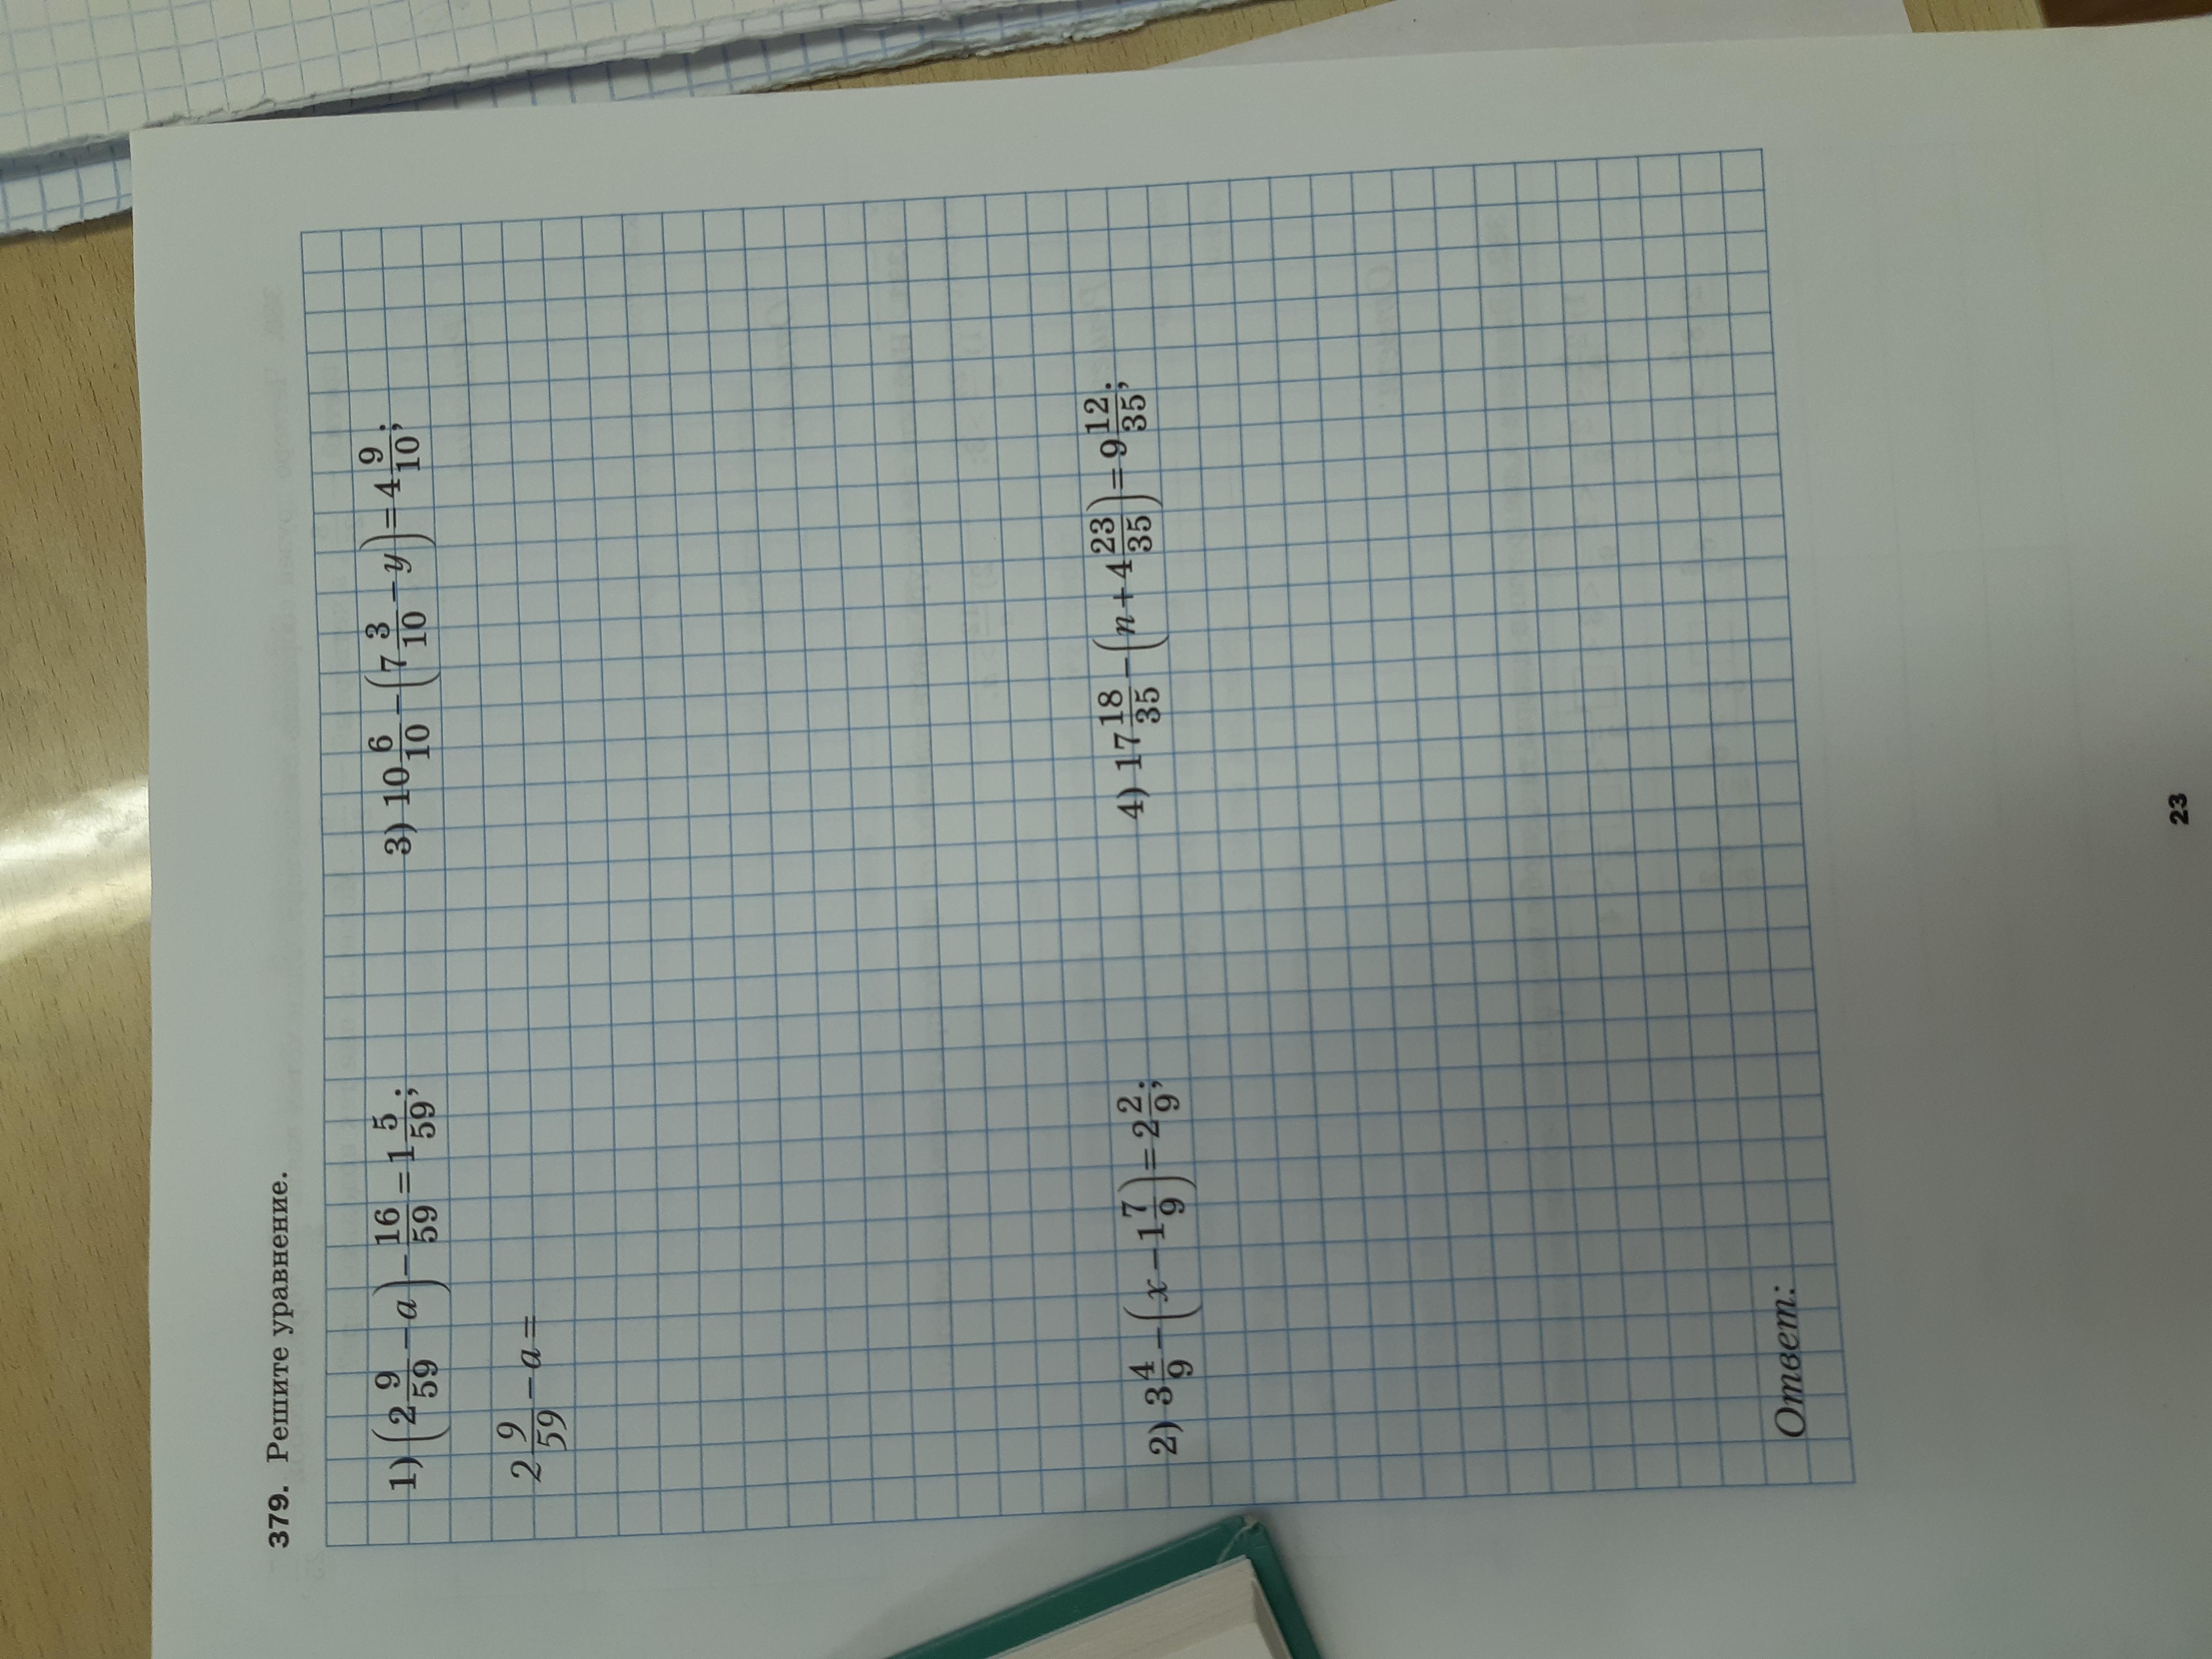 379. Решите уравнение.
1) (2 9/59 − a) − 16/59 = 1 5/59;
3) 10 6/10 − (7 3/10 − y) = 4 9/10;
2 9/59 − a =
2) 3 4/9 − (x − 1 7/9) = 2 2/9;
4) 17 18/35 − (n + 4 23/35) = 9 12/35;
Ответ:
23